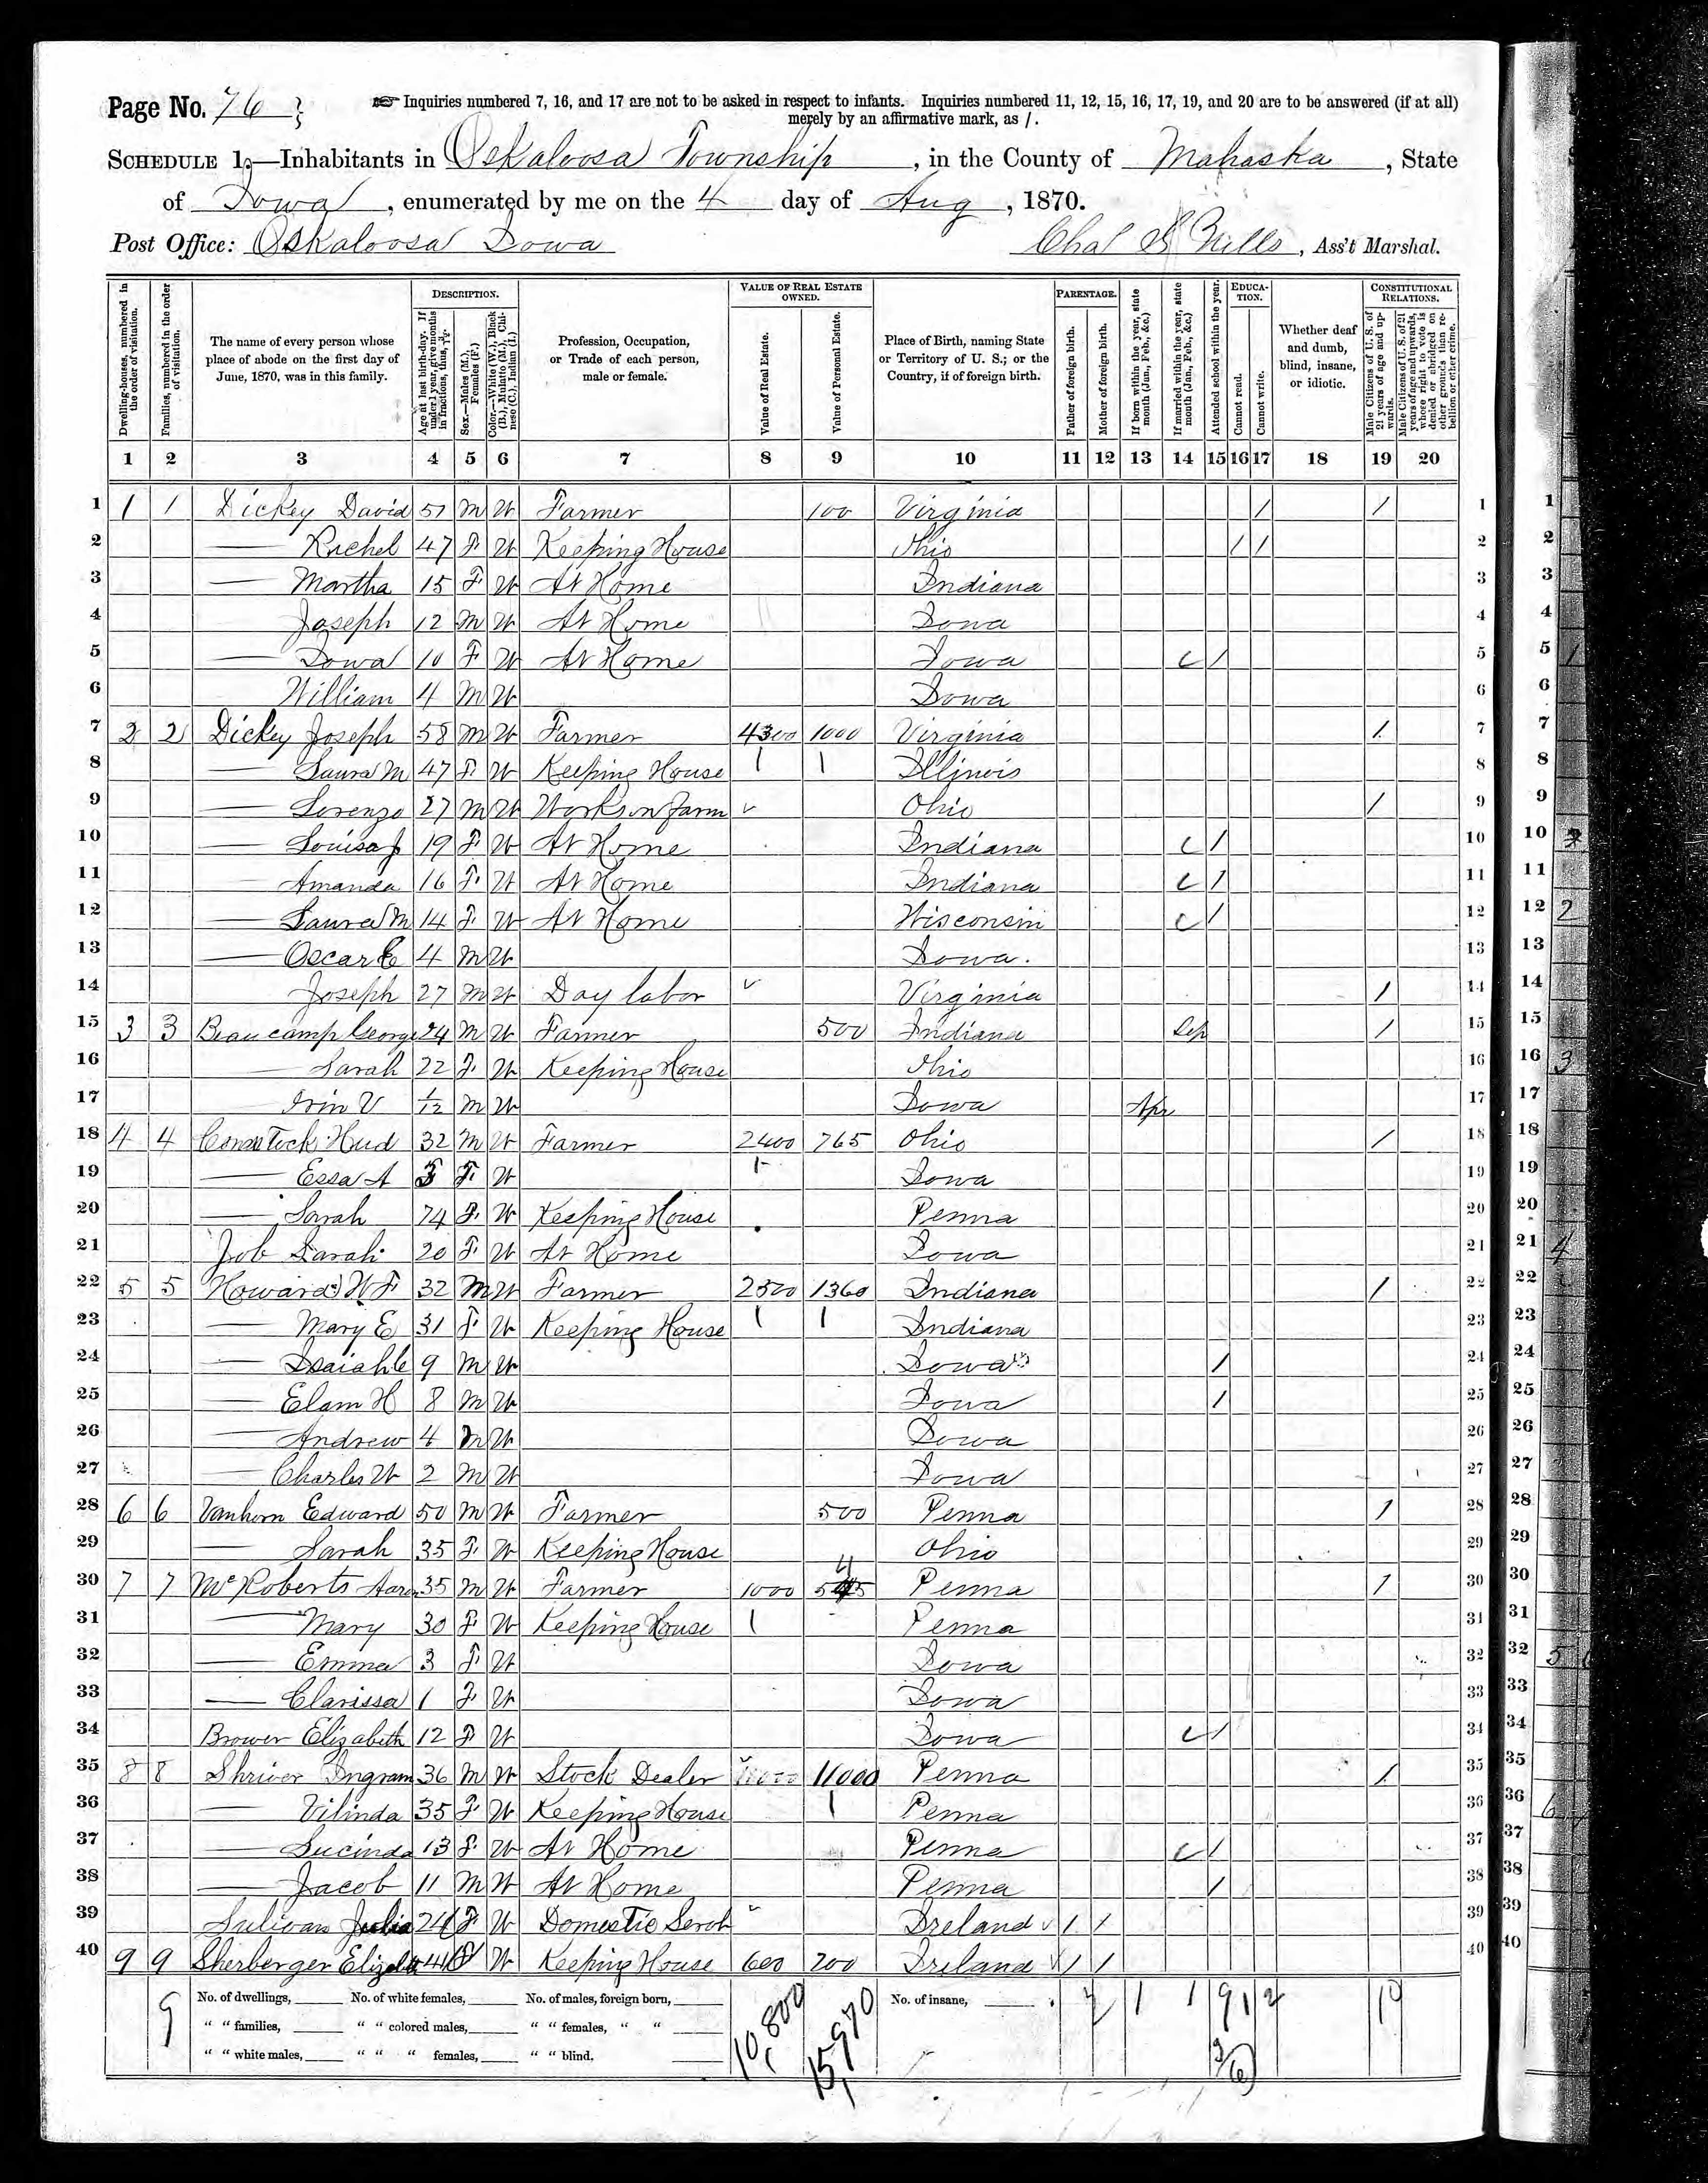 Page No. 76
Inquiries numbered 7, 16, and 17 are not to be asked in respect to infants. Inquiries numbered 11, 12, 15, 16, 17, 19, and 20 are to be answered (if at all)
merely by an affirmative mark, as /.
SCHEDULE 1.—Inhabitants in Oskaloosa Township, in the County of Mahaska, State
of Iowa, enumerated by me on the 4 day of Aug, 1870.
Post Office: Oskaloosa Iowa Ass't Marshal.
Dwelling-houses, numbered in the order of visitation.
Families, numbered in the order of visitation.
The name of every person whose place of abode on the first day of June, 1870, was in this family.
DESCRIPTION.
Age at last birth-day. If under 1 year, give months in fractions, thus, 3/12
Sex.—Males (M.), Females (F.)
Color.—White (W.), Black (B.), Mulatto (M.), Chinese (C.), Indian (I.)
Profession, Occupation, or Trade of each person, male or female.
VALUE OF REAL ESTATE OWNED.
Value of Real Estate.
Value of Personal Estate.
Place of Birth, naming State or Territory of U. S.; or the Country, if of foreign birth.
PARENTAGE.
Father of foreign birth.
Mother of foreign birth.
If born within the year, state month (Jan., Feb., &c.)
If married within the year, state month (Jan., Feb., &c.)
Attended school within the year.
EDUCATION.
Cannot read.
Cannot write.
Whether deaf and dumb, blind, insane, or idiotic.
CONSTITUTIONAL RELATIONS.
Male Citizens of U. S. of 21 years of age and upwards.
Male Citizens of U. S. of 21 years of age and upwards, whose right to vote is denied or abridged on other grounds than rebellion or other crime.
1 2 3 4 5 6 7 8 9 10 11 12 13 14 15 16 17 18 19 20
1 1 1 Dickey David 51 M W Farmer 100 Virginia / / 1
2 — Rachel 47 F W Keeping House Ohio / / 2
3 — Martha 15 F W At Home Indiana 3
4 — Joseph 12 M W At Home Iowa 4
5 — Iowa 10 F W At Home Iowa c / 5
6 William 4 M W Iowa 6
7 2 2 Dickey Joseph 58 M W Farmer 4300 1000 Virginia / 7
8 — Laura M 47 F W Keeping House Illinois 8
9 — Lorenzo 27 M W Works on farm Ohio / 9
10 — Louisa J 19 F W At Home Indiana c / 10
11 — Amanda 16 F W At Home Indiana c / 11
12 — Laura M 14 F W At Home Wisconsin c / 12
13 — Oscar E 4 M W Iowa 13
14 Joseph 27 M W Day labor Virginia / 14
15 3 3 Beaucamp George 24 M W Farmer 500 Indiana Sep / 15
16 — Sarah 22 F W Keeping House Ohio 16
17 — V 1/12 M W Iowa Apr 17
18 4 4 Comstock Hud 32 M W Farmer 2400 765 Ohio / 18
19 — Essa A F W Iowa 19
20 — Sarah 74 F W Keeping House Penna 20
21 Job Sarah 20 F W At Home Iowa 21
22 5 5 Howard W F 32 M W Farmer 2500 1360 Indiana / 22
23 — Mary E 31 F W Keeping House Indiana 23
24 — Isaiah C 9 M W Iowa / 24
25 — Elam H 8 M W Iowa / 25
26 — Andrew 4 M W Iowa 26
27 — Charles W 2 M W Iowa 27
28 6 6 Vanhorn Edward 50 M W Farmer 500 Penna / 28
29 — Sarah 35 F W Keeping House Ohio 29
30 7 7 McRoberts Aaron 35 M W Farmer 1000 545 Penna / 30
31 — Mary 30 F W Keeping House Penna 31
32 — Emma 3 F W Iowa 32
33 — Clarissa 1 F W Iowa 33
34 Brower Elizabeth 12 F W Iowa c / 34
35 8 8 Shriver Ingram 36 M W Stock Dealer 11000 Penna / 35
36 — Vilinda 35 F W Keeping House Penna 36
37 — Lucinda 13 F W At Home Penna c / 37
38 — Jacob 11 M W At Home Penna / 38
39 Sulivan Julia 24 F W Domestic Ireland / / 39
40 9 9 Sherberger 41 F W Keeping House 600 200 Ireland / / 40
9 No. of dwellings, No. of white females, No. of males, foreign born, 10,800 15,970 No. of insane, 2 1 1 9 1 2 10
" " families, " " colored males, " " females, " "
" " white males, " " " females, " " blind,